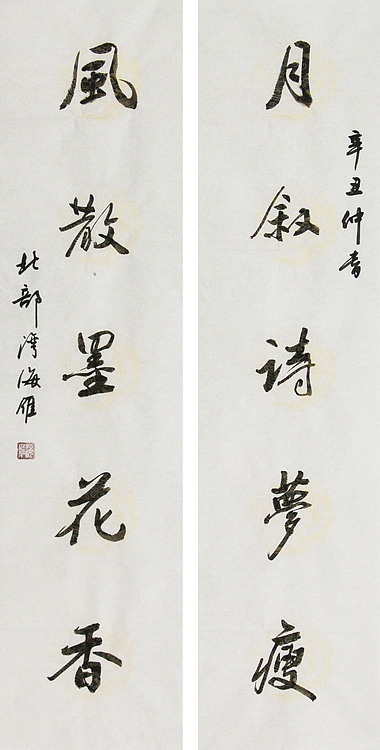 辛丑仲春
月叙诗夢瘦
風散墨花香
北部湾海雁